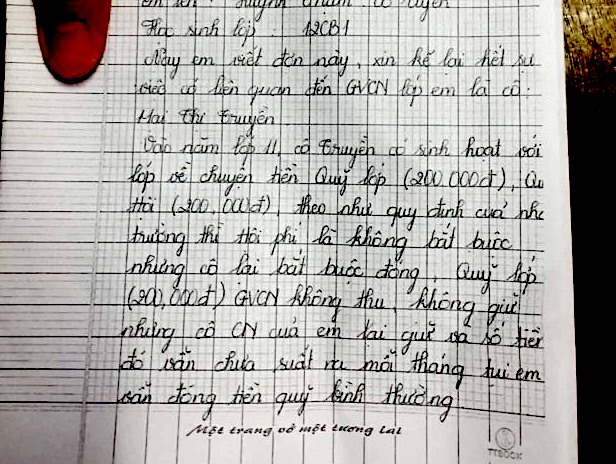 em tên : Huỳnh
Học sinh lớp : 12CB1
Nay em viết đơn này, xin kể lại hết sự
việc có liên quan đến GVCN lớp em là cô:
Mai Thị Truyền
Vào năm lớp 11, cô Truyền có sinh hoạt với
lớp về chuyện tiền Quỹ lớp (200.000đ), Qu
Hội (200,000đ), theo như quy định của nhà
trường thì Hội phí là không bắt buộc
nhưng cô lại bắt buộc đóng, Quỹ lớp
(200,000đ) GVCN không thu, không giữ
nhưng cô CN của em lại giữ và số tiền
đó vẫn chưa suất ra mỗi tháng tụi em
vẫn đóng tiền quỹ bình thường
Một trang vở một tương lai
TTBOOK